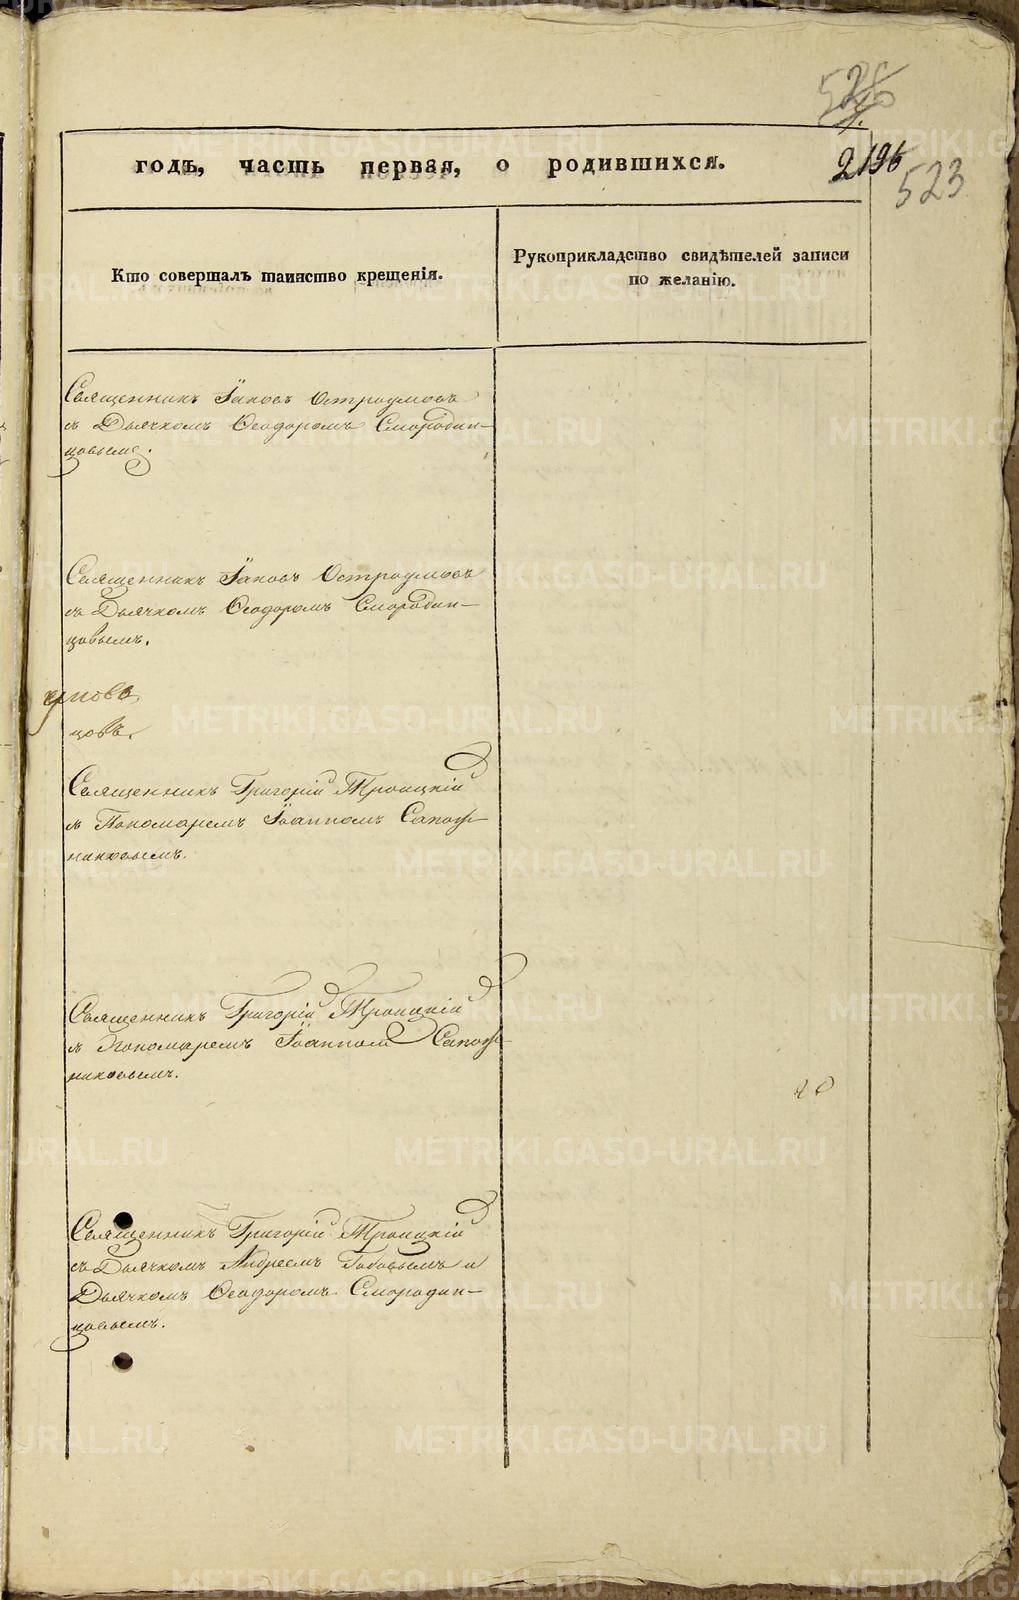 годъ, часть первая, о родившихся.
523
Кто совершалъ таинство крещенія.
Рукоприкладство свидѣтелей записи
по желанію.
Священникъ Іаковъ Остроумовъ
съ Дьячкомъ Ѳеодоромъ Смородин-
цовымъ.
Священникъ Іаковъ Остроумовъ
съ Дьячкомъ Ѳеодоромъ Смородин-
цовымъ.
цовъ.
Священникъ Григорій Троицкій
съ Пономаремъ Іоанномъ Сапож-
никовымъ.
Священникъ Григорій Троицкій
съ Пономаремъ Іоанномъ Сапож-
никовымъ.
Священникъ Григорій Троицкій
съ Дьячкомъ Андреемъ и
Дьячкомъ Ѳеодоромъ Смородин-
цовымъ.
METRIKI.GASO-URAL.RU